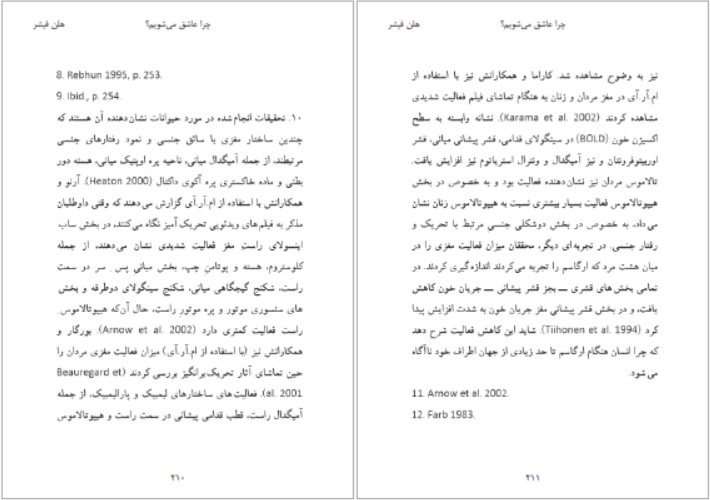 چرا عاشق می‌شویم؟ هلن فیشر
8. Rebhun 1995, p. 253.
9. Ibid., p. 254.
۱۰. تحقیقات انجام‌شده در مورد حیوانات نشان‌دهنده آن هستند که
چندین ساختار مغزی با سائق جنسی و نمود رفتارهای جنسی
مرتبطند، از جمله آمیگدال میانی، ناحیه پره اوپتیک میانی، هسته دور
بطنی و ماده خاکستری پره آکوی داکتال (Heaton 2000). آرنو و
همکارانش با استفاده از ام.آر.آی گزارش می‌دهند که وقتی داوطلبان
مذکر به فیلم‌های ویدئویی تحریک آمیز نگاه می‌کنند، در بخش ساب
اینسولای راست مغز فعالیت شدیدی نشان می‌دهند، از جمله
کلوستروم، هسته و پوتامن چپ، بخش میانی پس ـ سر دو سمت
راست، شکنج گیجگاهی میانی، شکنج سینگولای دوطرفه و بخش
های سنسوری موتور و پره موتور راست، حال آن‌که هیپوتالاموس
راست فعالیت کمتری دارد (Arnow et al. 2002). بورگار و
همکارانش نیز (با استفاده از ام.آر.آی) میزان فعالیت مغزی مردان را
حین تماشای آثار تحریک‌برانگیز بررسی کردند (Beauregard et
al. 2001). فعالیت‌های ساختارهای لیمبیک و پارالیمبیک، از جمله
آمیگدال راست، قطب قدامی پیشانی در سمت راست و هیپوتالاموس
۲۱۰
چرا عاشق می‌شویم؟ هلن فیشر
نیز به وضوح مشاهده شد. کاراما و همکارانش نیز با استفاده از
ام.آر.آی در مغز مردان و زنان به هنگام تماشای فیلم فعالیت شدیدی
مشاهده کردند (Karama et al. 2002). نشانه وابسته به سطح
اکسیژن خون (BOLD) در سینگولای قدامی، قشر پیشانی میانی، قشر
اوربیتوفرونتان و نیز آمیگدال و ونترال استریاتوم نیز افزایش یافت.
تالاموس مردان نیز نشان‌دهنده فعالیت بود و به خصوص در بخش
هیپوتالاموس فعالیت بسیار بیشتری نسبت به هیپوتالاموس زنان نشان
می‌داد، به خصوص در بخش دوشکلی جنسی مرتبط با تحریک و
رفتار جنسی. در تجربه‌ای دیگر، محققان میزان فعالیت مغزی را در
میان هشت مرد که ارگاسم را تجربه می‌کردند اندازه‌گیری کردند. در
تمامی بخش‌های قشری ـــ بجز قشر پیشانی ـــ جریان خون کاهش
یافت، و در بخش قشر پیشانی مغز جریان خون به شدت افزایش پیدا
کرد (Tiihonen et al. 1994). شاید این کاهش فعالیت شرح دهد
که چرا انسان هنگام ارگاسم تا حد زیادی از جهان اطراف خود ناآگاه
می‌شود.
11. Arnow et al. 2002.
12. Farb 1983.
۲۱۱